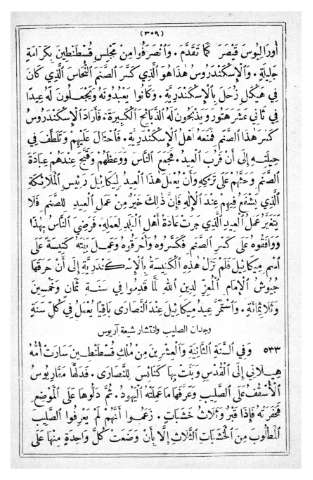 (٣٠٩)
أورالبوس قيصر كما تقدّم. وانصرفوا من مجلس قسطنطين بكرامة
جليلة. والإسكندروس هذا هو الذي كسر الصنم النحاس الذي كان
في هيكل زحل بالإسكندريّة. وكانوا يعبدونه ويجعلون له عيدا
في ثاني عشر هتور ويذبحون له الذبائح الكبيرة. فأراد الإسكندروس
كسر هذا الصنم فمنعه أهل الإسكندريّة. فاحتال عليهم وتلطّف في
حيلته إلى أن قرب العيد. فجمع الناس ووعظهم وقبح عندهم عبادة
الصنم وحثّهم على تركه وأن يعمل هذا العيد لميكائيل رئيس الملائكة
الذي يشفع فيهم عند الإله فإن ذلك خير من عمل العيد للصنم فلا
يتغيّر عمل العيد الذي جرت عادة أهل البلد لعمله. فرضي الناس بهذا
ووافقوه على كسر الصنم فكسروه وأحرقوه وعمل بيته كنيسة على
اسم ميكائيل فلم تزل هذه الكنيسة بالإسكندريّة إلى أن حرقها
جيوش الإمام المعزّ لدين الله لمّا قدموا في سنة ثمان وخمسين
وثلاثمائة. واستمرّ عيد ميكائيل عند النصارى باقيا يعمل في كلّ سنة
وجدان الصليب وانتشار شيعة آريوس
٥٣٣ وفي السنة الثانية والعشرين من ملك قسطنطين سارت أمّه
هيلاني إلى القدس وبنت بها كنائس للنصارى. فدلّها مقاريوس
الأسقف على الصليب وعرفها ما عملته اليهود. ثم دلوها على الموضع
فحفرته فإذا قبر وثلاث خشبات. زعموا أنّهم لم يعرفوا الصليب
المطلوب من الخشبات الثلاث إلّا بأن وضعت كلّ واحدة منها على